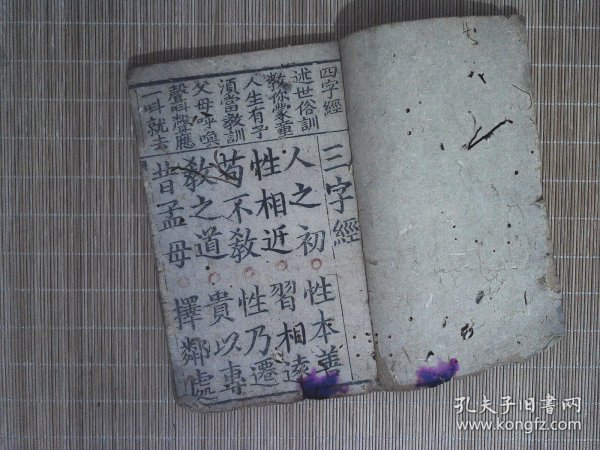 四字經
述世俗訓
教你蒙童
人生有子
湏當教訓
父母呼喚
聲呌聲應
一呌就去
三字經
人之初 性本善
性相近 習相遠
苟不教 性乃遷
教之道 貴以專
昔孟母 擇鄰處
孔夫子旧书网
www.kongfz.com